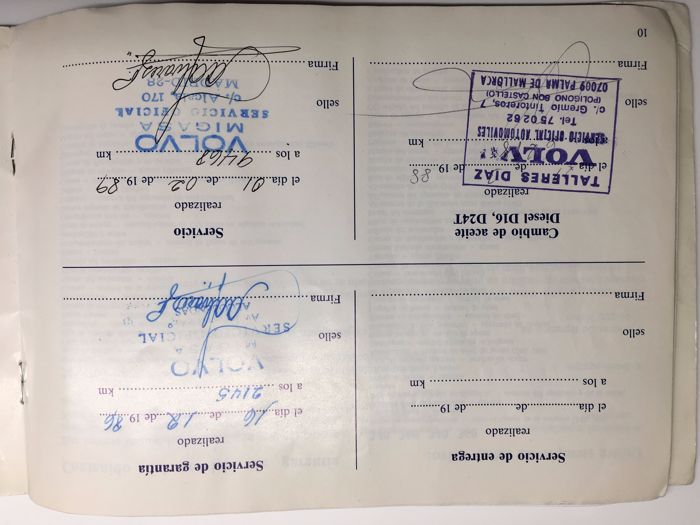 Servicio de entrega
realizado
el día ............ de ............ de 19 ............
a los ............ km
sello
Firma
Servicio de garantía
realizado
el día 16 de 12 de 19 86
a los 2145 km
sello
VOLVO
SER CIAL
Firma
Cambio de aceite
Diesel D16, D24T
realizado
el día de de 19 88
km
TALLERES DIAZ
VOLV
SERVICIO OFICIAL AUTOMOVILES
Tel. 75 02 62
c/. Gremio Tintoreros, 7
(POLIGONO BON CASTELLO)
07009 PALMA DE MALLORCA
sello
Firma
Servicio
realizado
el día 01 de 02 de 19 89
a los 9468 km
sello
VOLVO
MIGASA
SERVICIO OFICIAL
c/. Alcalá, 170
MADRID-28
Firma
10